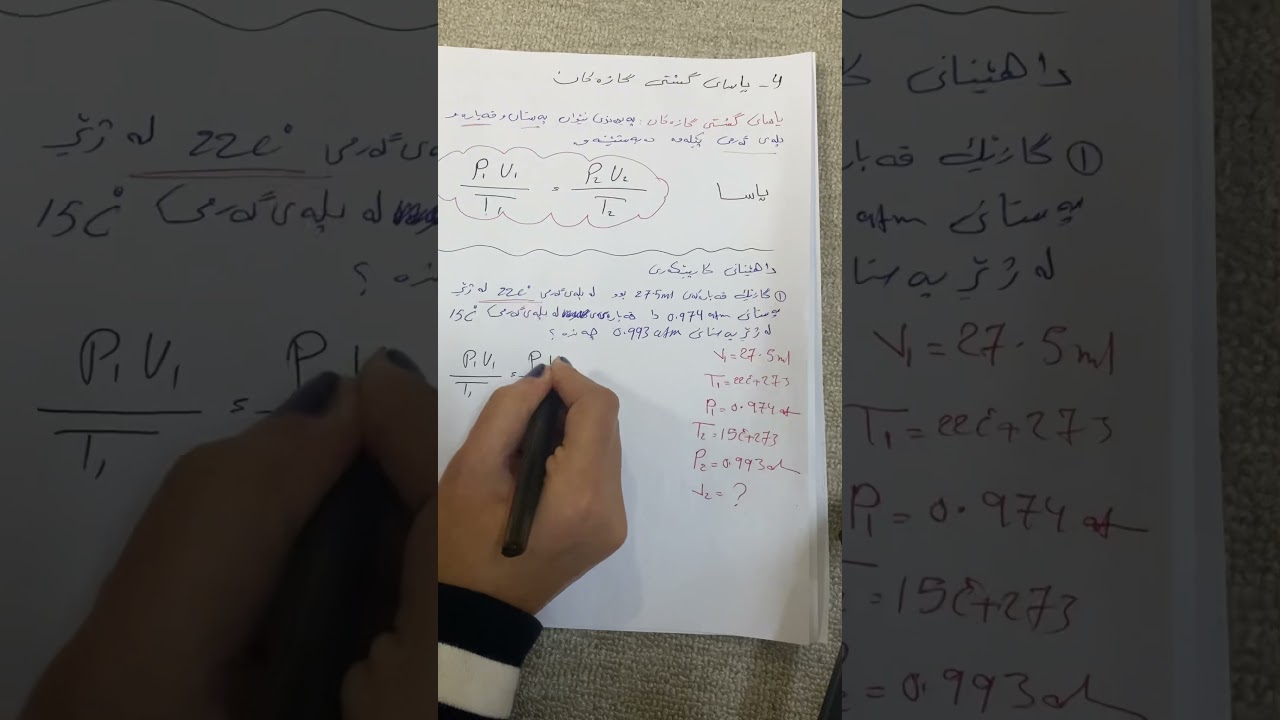 4- یاسای گشتی گازەکان
یاسای گشتی گازەکان: پەیوەندی نێوان پەستان و قەبارە و
پلەی گەرمی پێکەوە دەبەستێتەوە
یاسا
P₁ V₁ / T₁ = P₂ V₂ / T₂
داهێنانی کارینگەری
① گازێك قەبارەکەی 27.5ml بوو لە پلەی گەرمی 22c° لە ژێر
پەستانی 0.974 atm دا قەبارەی لە پلەی گەرمی 15c°
لە ژێر پەستانی 0.993 atm چەندە؟
P₁ V₁ / T₁ = P
V₁ = 27.5ml
T₁ = 22c+273
P₁ = 0.974 at
T₂ = 15c+273
P₂ = 0.993 at
V₂ = ?